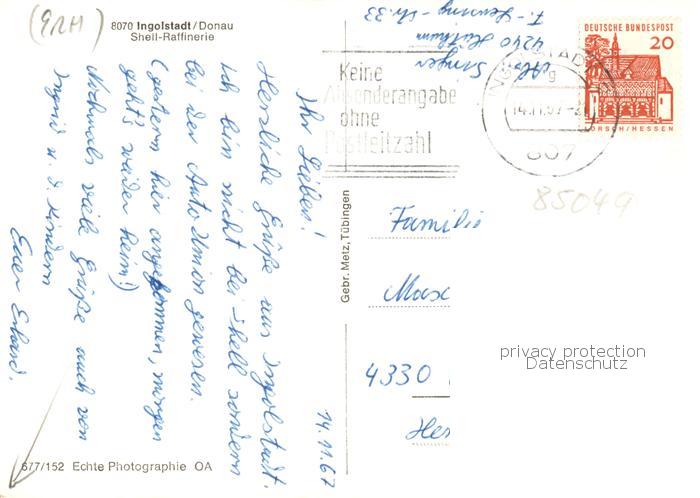 (ERH)
8070 Ingolstadt/Donau
Shell-Raffinerie
14.11.67
Ihr Lieben!
Herzliche Grüße aus Ingolstadt.
Ich bin nicht bei Shell sondern
bei der Auto Union gewesen.
(gestern hier angekommen, morgen
geht's wieder heim!)
Nochmals viele Grüße auch von
Ingrid u. d. Kindern
Euer Erhard.
677/152 Echte Photographie OA
Gebr. Metz, Tübingen
4240
Keine
Absenderangabe
ohne
Postleitzahl
INGOLSTADT
g
14.11.67
807
DEUTSCHE BUNDESPOST
20
LORSCH/HESSEN
85049
Familie
4330
privacy protection
Datenschutz